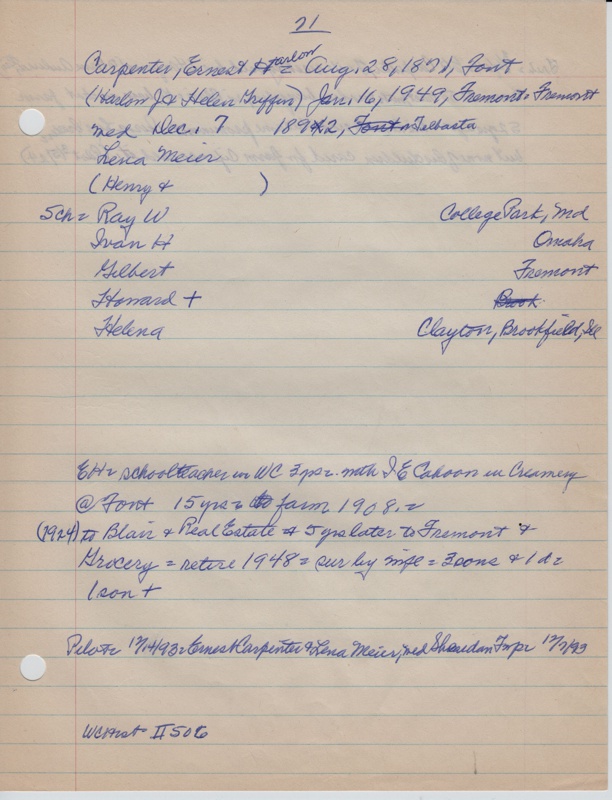 21
Carpenter, Ernest Harlow = Aug. 28, 1871, Font
(Harlow J & Helen Griffin) Jan. 16, 1949, Fremont = Fremont
med Dec. 7 1892, Font = Telbasta
Lena Meier
(Henry & )
5ch = Ray W College Park, Md
Ivan H Omaha
Gilbert Fremont
Howard + Brook
Helena Clayton, Brookfield, Ill
EH = school teacher in WC 3 yrs = with I E Cahoon in Creamery
@ Font 15 yrs = to farm 1908. =
(1924) to Blair & Real Estate = 5 yrs later to Fremont &
Grocery = retire 1948 = sur by wife = 3 sons & 1 d =
1 son +
Pilot = 12/14/93 = Ernest Carpenter & Lena Meier, med Sheridan Twp = 12/7/93
WCHist II 506